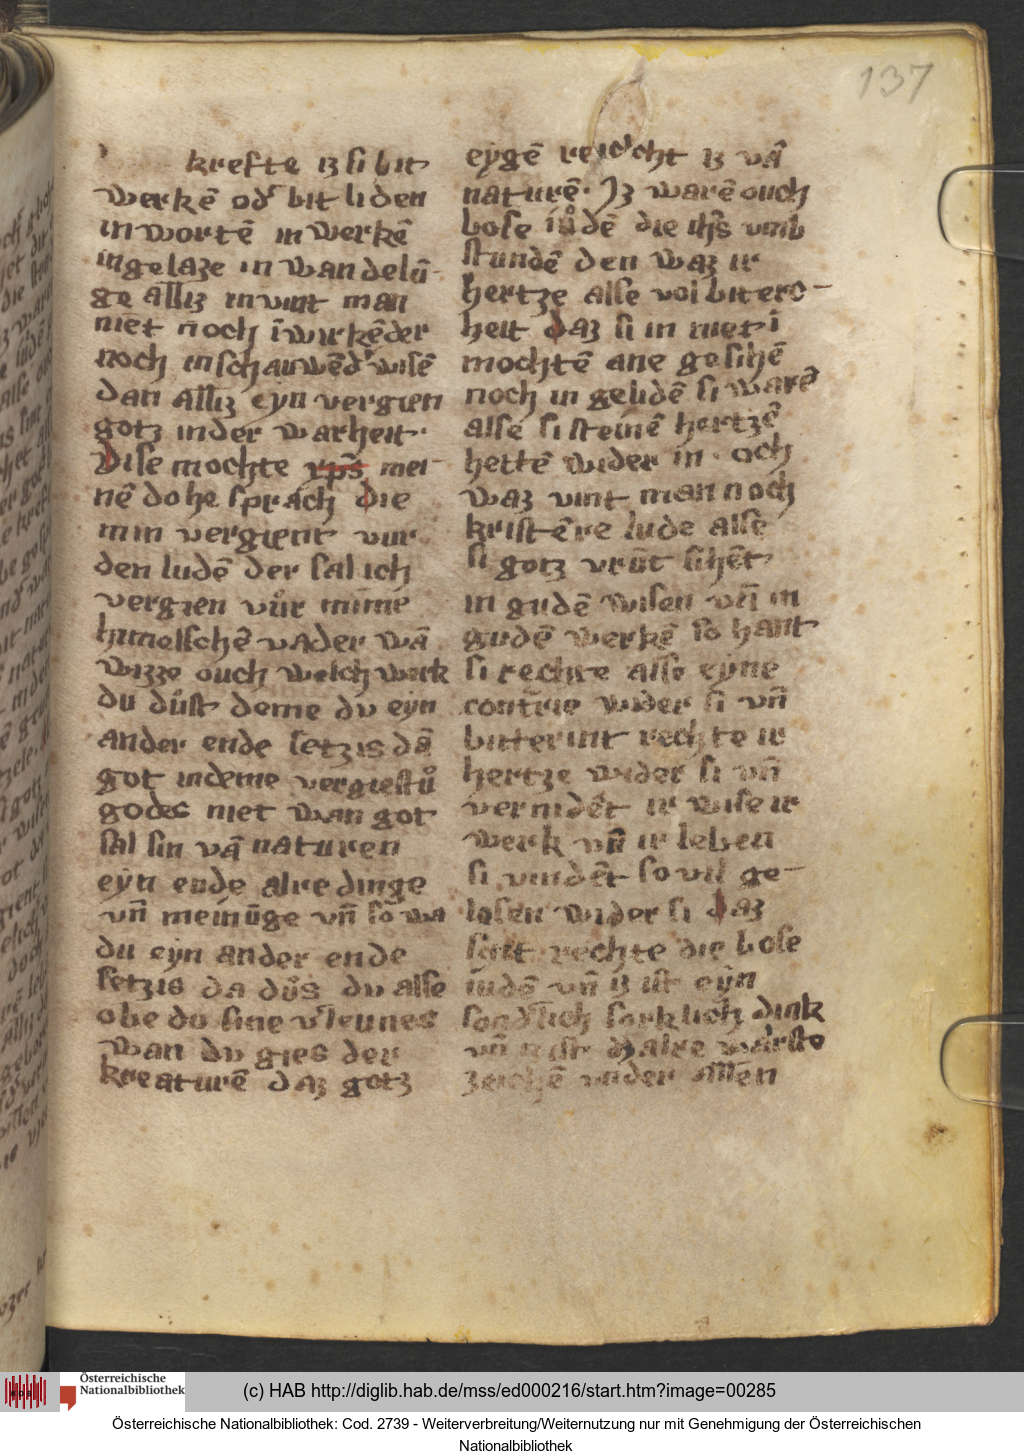 137
krefte iz si bit
werkē od' bit liden
in wortē in werkē
ingelaze in wandelū
ge alliz invint man
niet noch ī wirkēder
noch inschauwēd' wisē
dan alliz eyn vergien
gotz inder warheit.
Dise mochte xp̄s mei
nē do he sprach die
min vergient vur
den ludē der sal ich
vergien vůr mime
himelschē vader wā
wizze ouch welch werk
du důst deme du eyn
ander ende setzis dā
got indeme vergiestů
godes niet wan got
sal sin vā naturen
eyn ende alre dinge
vn̄ meinūge vn̄ so wa
du eyn ander ende
setzis da důs du alse
obe du sine v'leunes
wan du gies der
kreaturē daz gotz
eygē reicht iz vā
naturē. Iz warē ouch
bose iůdē die ih̄s vmb
stundē den waz ir
hertze alse vol bitero
heit daz si in niet ī
mochtē ane gesihē
noch in gelidē si warē
alse si steinē hertzē
hettē wider in. och
waz vint man noch
kristēre lude alse
si gotz vrūt sihēt
in gudē wisen vn̄ in
gudē werkē so hant
si rechte alse eyne
contrie wider si vn̄
bitterint rechte ir
hertze wider si vn̄
vernidēt ir wise ir
werk vn̄ ir leben
si vindēt so vil ge
losen wider si daz
sint rechte die bose
iudē vn̄ iz ist eyn
sorklich dink
vn̄ ist d' alre warste
zeichē vnder allen
(c) HAB http://diglib.hab.de/mss/ed000216/start.htm?image=00285
Österreichische Nationalbibliothek
Österreichische Nationalbibliothek: Cod. 2739 - Weiterverbreitung/Weiternutzung nur mit Genehmigung der Österreichischen
Nationalbibliothek